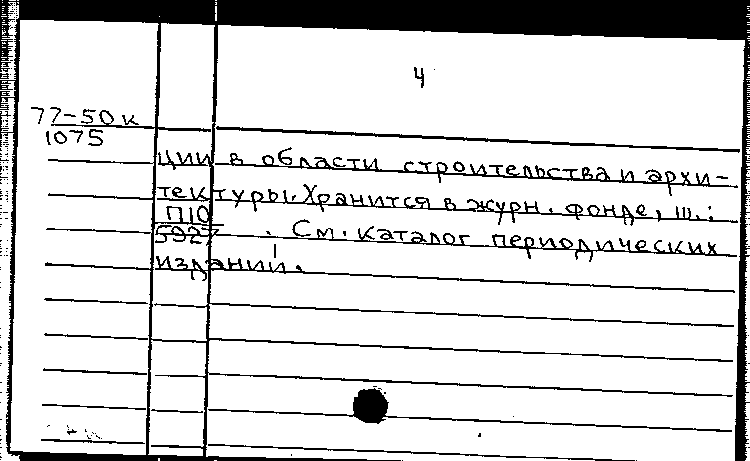 4
77-50к
1075
ции в области строительства и архи-
тектуры. Хранится в журн. фонде, ш.:
П10
5927 . См. каталог периодических
изданий.